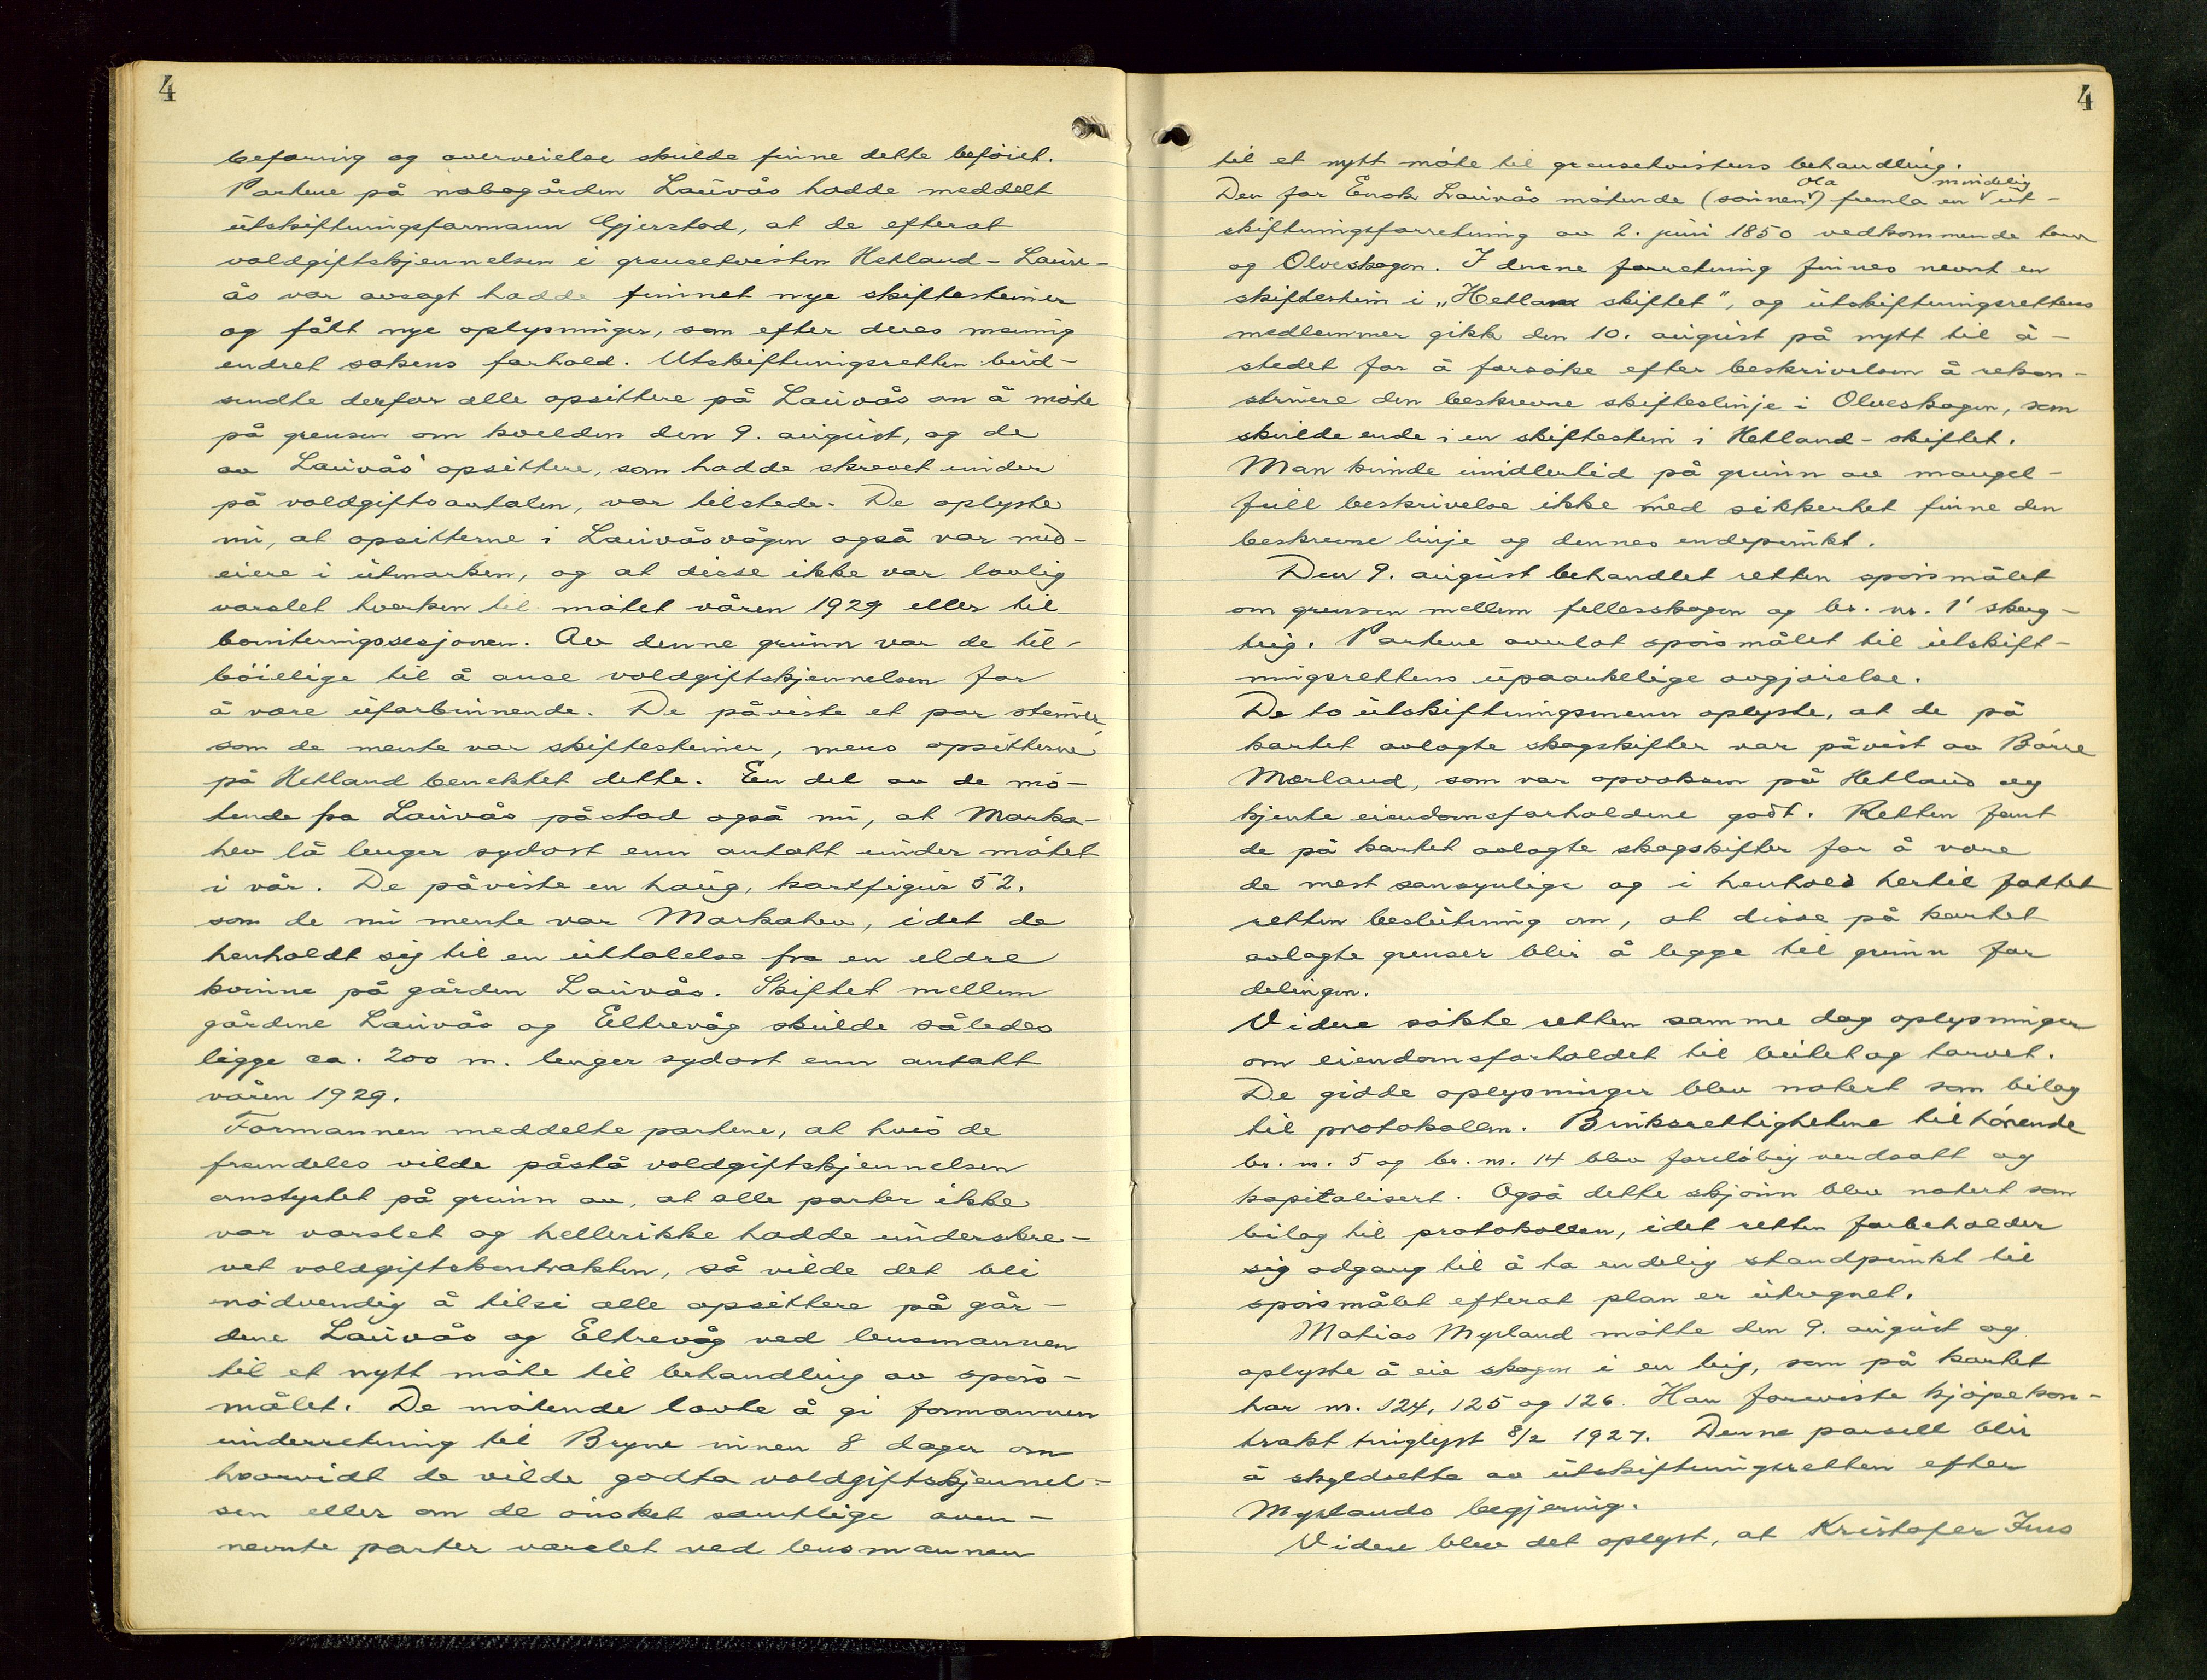 4
befaring og overveielse skulde finne dette beføiet.
Partene på nabogården Lauvås hadde meddelt
utskiftningsformann Gjerstad, at de efterat
voldgiftskjennelsen i grensetvisten Hetland - Lauv-
ås var avsagt hadde funnet nye skiftesteiner
og fått nye oplysninger, som efter deres mening
endret sakens forhold. Utskiftningsretten bud-
sendte derfor alle opsittere på Lauvås om å møte
på grensen om kvelden den 9. august, og de
av Lauvås' opsittere, som hadde skrevet under
på voldgiftsavtalen, var tilstede. De oplyste
nu, at opsitterne i Lauvåsvågen også var med-
eiere i utmarken, og at disse ikke var lovlig
varslet hverken til møtet våren 1929 eller til
boniteringssesjonen. Av denne grunn var de til-
bøielige til å anse voldgiftskjennelsen for
å være uforbinnende. De påviste et par steiner,
som de mente var skiftesteiner, mens opsitterne
på Hetland benektet dette. En del av de mø-
tende fra Lauvås påstod også nu, at Marka-
hev lå lenger sydøst enn antatt under møtet
i vår. De påviste en haug, kartfigur 52,
som de nu mente var Markahev, idet de
henholdt sig til en uttalelse fra en eldre
kvinne på gården Lauvås. Skiftet mellem
gårdene Lauvås og Eltrevåg skulde således
ligge ca. 200 m. lenger sydøst enn antatt
våren 1929.
Formannen meddelte partene, at hvis de
fremdeles vilde påstå voldgiftskjennelsen
omstøtet på grunn av, at alle parter ikke
var varslet og hellerikke hadde underskre-
vet voldgiftskontrakten, så vilde det bli
nødvendig å tilsi alle opsittere på går-
dene Lauvås og Eltrevåg ved lensmannen
til et nytt møte til behandling av spørs-
målet. De møtende lovte å gi formannen
underretning til Bryne innen 8 dager om
hvorvidt de vilde godta voldgiftskjennel-
sen eller om de ønsket samtlige oven-
nevnte parter varslet ved lensmannen
4
til et nytt møte til grensetvistens behandling.
Den for Enok Lauvås møtende (sønnen Ola) fremla en mindelig ut-
skiftningsforretning av 2. juni 1850 vedkommende
og Olveskogen. I denne forretning finnes nevnt en
skiftestein i „Hetland skiftet", og utskiftningsrettens
medlemmer gikk den 10. august på nytt til å-
stedet for å forsøke efter beskrivelsen å rekon-
struere den beskrevne skifteslinje i Olveskogen, som
skulde ende i en skiftestein i Hetland-skiftet.
Man kunde imidlertid på grunn av mangel-
full beskrivelse ikke med sikkerhet finne den
beskrevne linje og dennes endepunkt.
Den 9. august behandlet retten spørsmålet
om grensen mellem fellesskogen og br. nr. 1' skog-
teig. Partene overlot spørsmålet til utskift-
ningsrettens upaankelige avgjørelse.
De to utskiftningsmenn oplyste, at de på
kartet avlagte skogskifter var påvist av Børre
Mørland, som var opvoksen på Hetland og
kjente eiendomsforholdene godt. Retten fant
de på kartet avlagte skogskifter for å være
de mest sansynlige og i henhold hertil fattet
retten beslutning om, at disse på kartet
avlagte grenser blir å legge til grunn for
delingen.
Videre søkte retten samme dag oplysninger
om eiendomsforholdet til beitet og torvet.
De gidde oplysninger blev notert som bilag
til protokollen. Bruksrettighetene tilhørende
br. nr. 5 og br. nr. 14 blev foreløbig verdsatt og
kapitalisert. Også dette skjønn blev notert som
bilag til protokollen, idet retten forbeholder
sig adgang til å ta endelig standpunkt til
spørsmålet efterat plan er utregnet.
Matias Myrland møtte den 9. august og
oplyste å eie skogen i en teig, som på kartet
har nr. 124, 125 og 126. Han foreviste kjøpekon-
trakt tinglyst 8/2 1927. Denne parsell blir
å skyldsette av utskiftningsretten efter
Myrlands begjæring.
Videre blev det oplyst, at Kristofer Jens